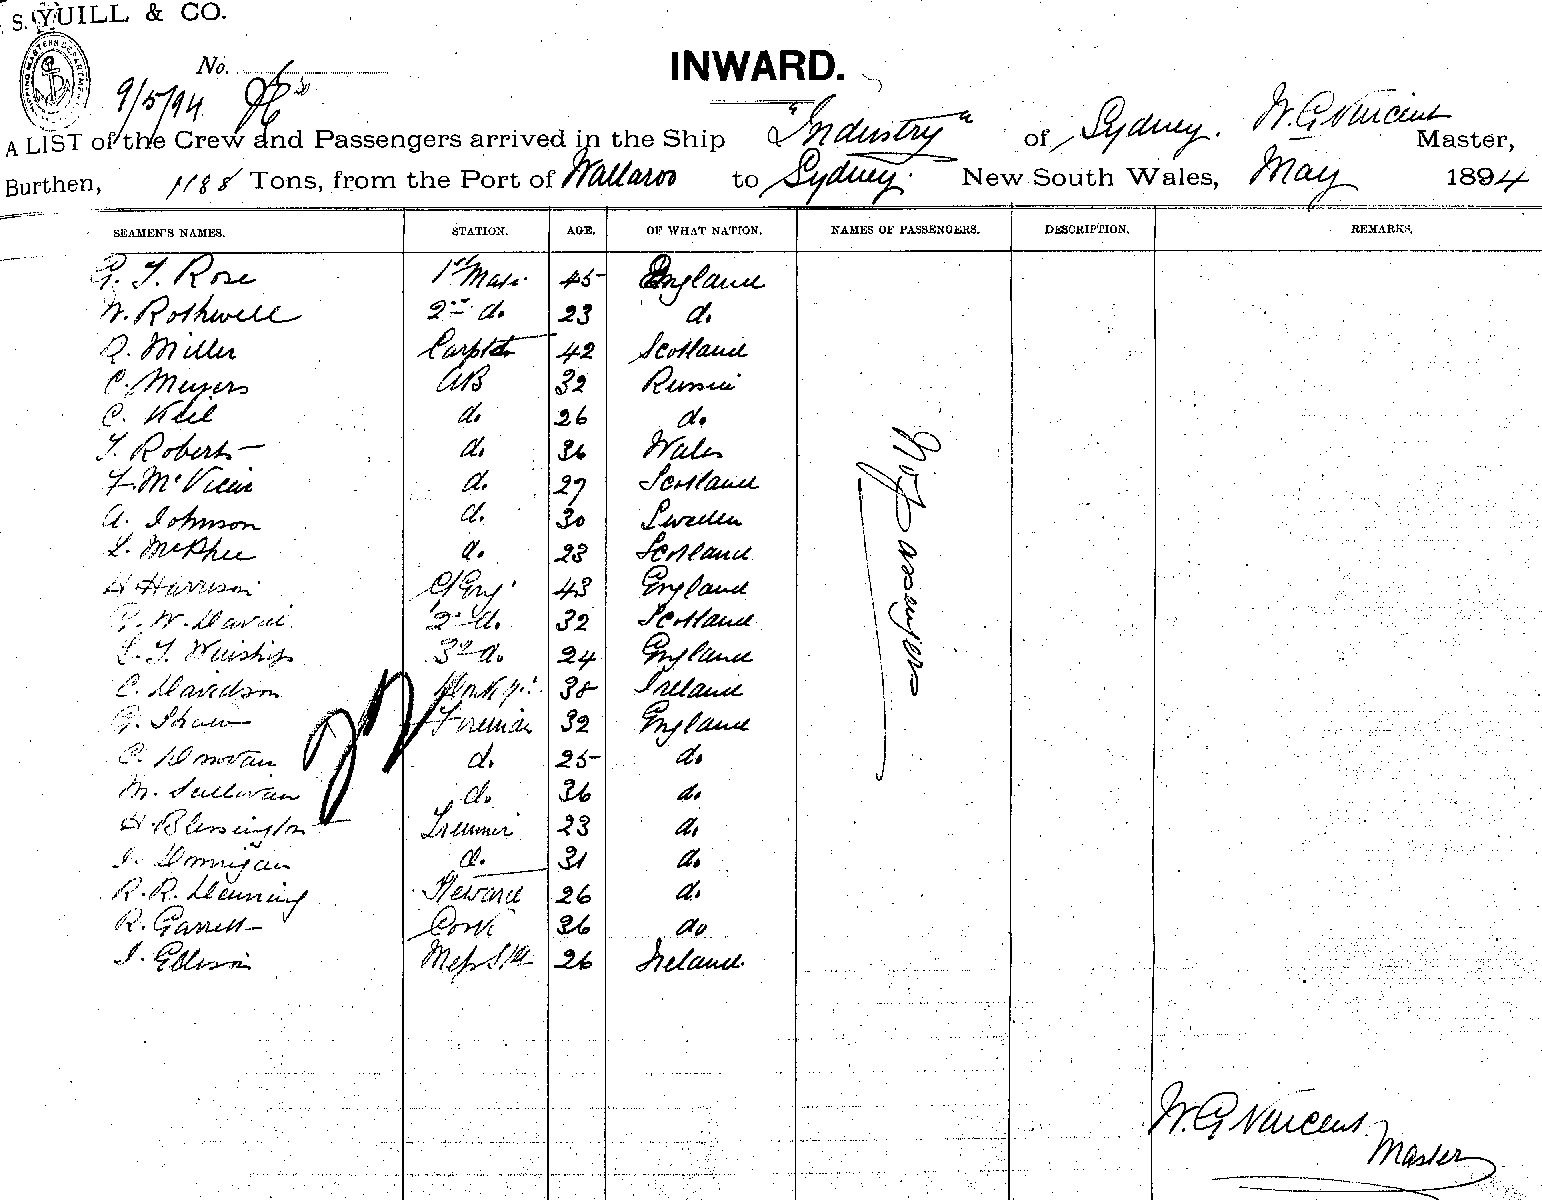 S. YUILL & CO.
No.
9/5/94
INWARD.
A LIST of the Crew and Passengers arrived in the Ship "Industry" of Sydney. W. G Vincent Master,
Burthen, 1188 Tons, from the Port of Wallaroo to Sydney. New South Wales, May 1894
SEAMEN'S NAMES. STATION. AGE. OF WHAT NATION. NAMES OF PASSENGERS. DESCRIPTION. REMARKS.
G. T. Rose 1st Mate 45 England
W. Rothwell 2nd do. 23 do.
Miller Carptr 42 Scotland
C. Meyers AB 32 Russia
C. do. 26 do.
T. Roberts do. 36 Wales
do. 27 Scotland
A. Johnson do. 30 Sweden
L. McPhee do. 23 Scotland
H Harrison C/Eng. 43 England
W. 2nd do. 32 Scotland
L. T. Winship 3rd do. 24 England
C. Davidson 38 Ireland
G. Shaw Fireman 32 England
C. Donovan do. 25 do.
M. Sullivan do. 36 do.
H. Blessington Trimmer 23 do.
J. Donnigan do. 31 do.
R. R. Denning Steward 26 do.
R. Garrett Cook 36 do
J. Ellison Mess Std 26 Ireland.
No Passengers
W. G Vincent
Master